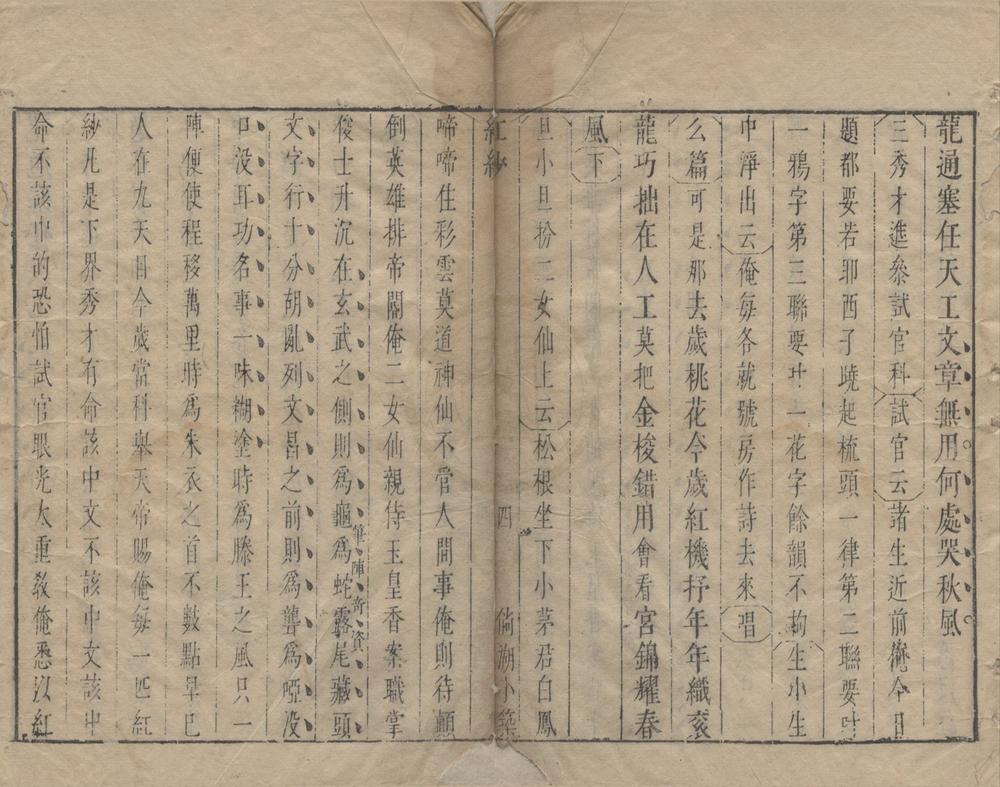 龍通塞任天工文章無用何處哭秋風
三秀才進叅試官科試官云諸生近前俺今日
題都要若耶西子曉起梳頭一律第二聯要叶
一鴉字第三聯要叶一花字餘韻不拘生小生
中淨出云俺每各就號房作詩去來唱
么篇可是那去歲桃花今歲紅機抒年年織衮
龍巧拙在人工莫把金梭錯用會看宮錦耀春
風下
旦小旦扮二女仙上云松根坐下小茅君白鳳
紅紗 四 倘湖小築
啼啼住彩雲莫道神仙不管人間事俺則待顚
倒英雄排帝閽俺二女仙親侍玉皇香案職掌
俊士升沉在玄武之側則爲龜爲蛇露尾藏頭
筆陣奇資
文字行十分胡亂列文昌之前則爲聾爲啞没
口没耳功名事一味糊塗時爲滕王之風只一
陣便使程移萬里時爲朱衣之首不數點早已
人在九天目今歲當科舉天帝賜俺每一匹紅
紗凡是下界秀才有命該中文不該中文該中
命不該中的恐怕試官眼光太重敎俺悉以紅